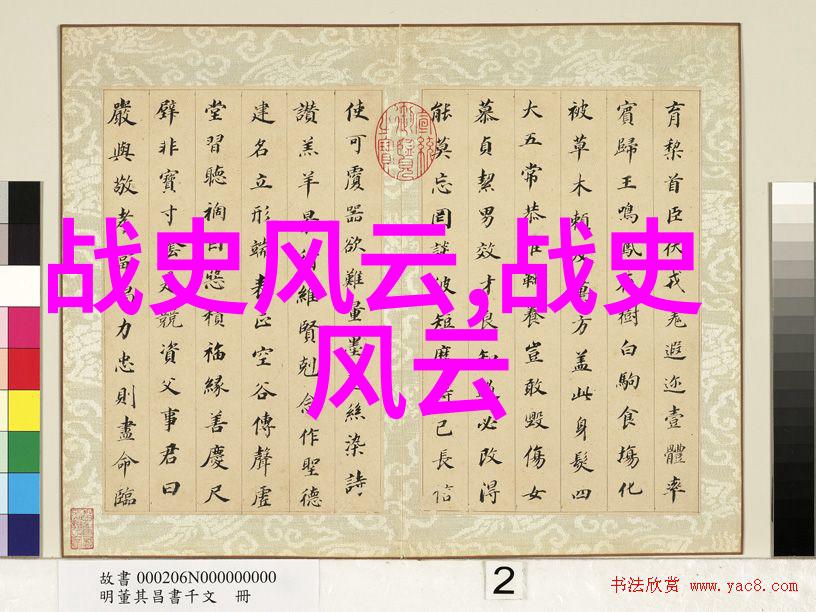 战史风云,战史
风云
育黎首臣伏戎羌遐迩壹體率
賓歸王鳴鳳在樹白駒食場化
被草木賴及萬方蓋此身髮四
大五常恭惟鞠養豈敢毀傷女
慕貞絜男效才良知過必改得
能莫忘罔談彼短靡恃己長信
使可覆器欲難量墨悲絲染詩
讚羔羊景行維賢剋念作聖德
建名立形端表正空谷傳聲虛
堂習聽禍因惡積福緣善慶尺
璧非寶寸陰是競資父事君曰
嚴與敬孝當竭力忠則盡命臨
宣統御覽之寶
故書 000206N000000000
明董其昌書千文 冊
2
书法欣赏 www.yac8.com